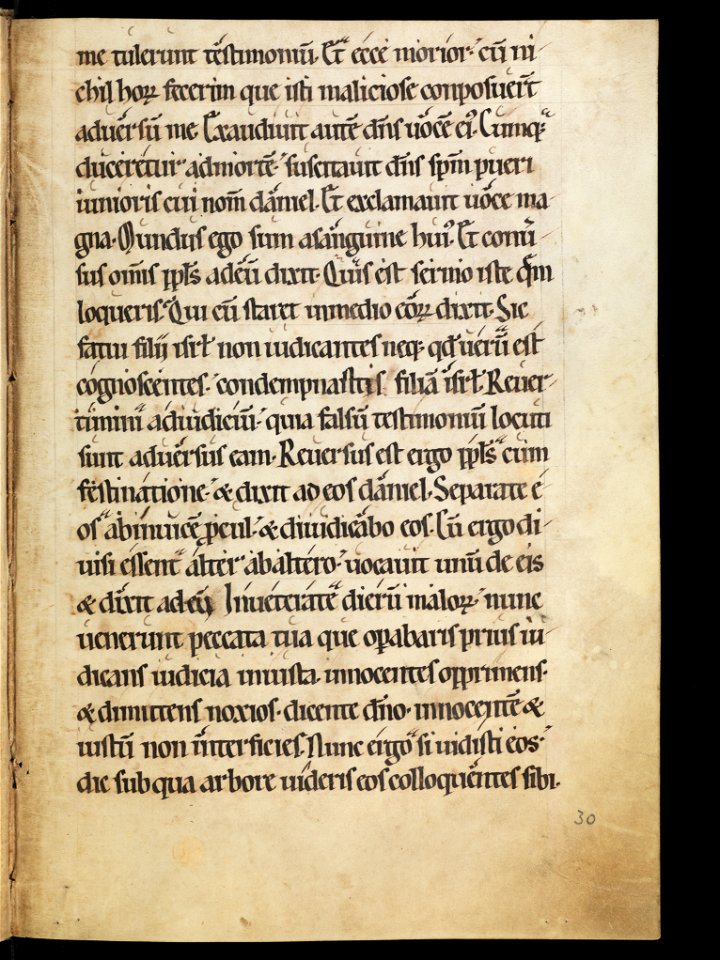 me tulerunt testimoniū. Et ecce morior. cū ni-
chil hoꝝ fecerim que isti maliciose conposuerт̄
aduersū me. Exaudiuit autē dn̄s uocē ei᷒. Cumq;
duceretur ad mortē. suscitauit dn̄s spm̄ pueri
iunioris cui nom̄ daniel. Et exclamauit uoce ma
gna. Mundus ego sum a sanguine hui᷒. Et conuer-
sus om̄is ppl̄s ad eū dixit. Quis est sermo iste quē
loqueris. Qui cū staret in medio eoꝝ dixit. Sic
fatui filii isrl̄ non iudicantes neq; qd̄ uerū est
cognoscentes. condempnastis filiā isrl̄. Reuer-
timini ad iudiciū. quia falsū testimoniū locuti
sunt aduersus eam. Reuersus est ergo ppl̄s cum
festinatione. & dixit ad eos daniel. Separate e-
os abinuicē ꝓcul. & diiudicabo eos. Cū ergo di-
uisi essent alter ab altero. uocauit unū de eis
& dixit ad eū. Inueterate dierū maloꝝ. nunc
uenerunt peccata tua que opabaris prius iu-
dicans iudicia iniusta. innocentes opprimens.
& dimittens noxios. dicente dn̄o. innocentē &
iustū non interficies. Nunc ergo si uidisti eos.
dic sub qua arbore uideris eos colloquentes sibi.
30